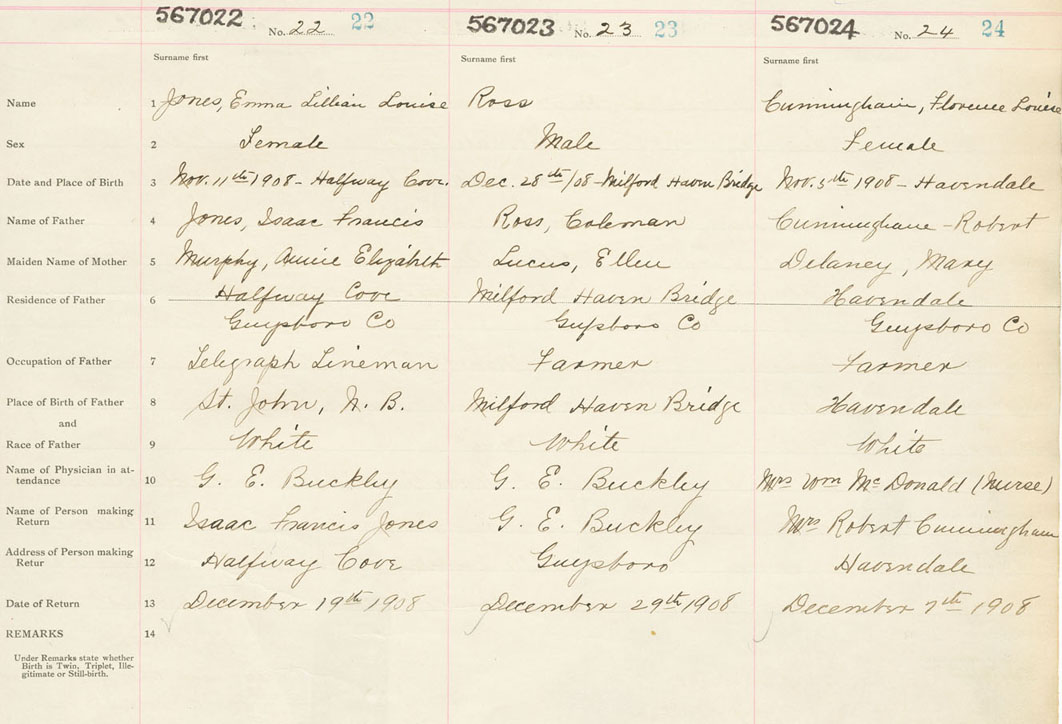 567022 No. 22 22 567023 No. 23 23 567024 No. 24 24
Surname first Surname first Surname first
Name 1 Jones, Emma Lillian Louise Ross Cunningham, Florence Louise
Sex 2 Female Male Female
Date and Place of Birth 3 Nov. 11th 1908 - Halfway Cove. Dec. 28th/08 - Milford Haven Bridge Nov. 5th 1908 - Havendale
Name of Father 4 Jones, Isaac Francis Ross, Coleman Cunninghame - Robert
Maiden Name of Mother 5 Murphy, Annie Elizabeth Lucus, Ellen Delaney, Mary
Residence of Father 6 Halfway Cove Milford Haven Bridge Havendale
Guysboro Co Guysboro Co Guysboro Co
Occupation of Father 7 Telegraph Lineman Farmer Farmer
Place of Birth of Father 8 St. John, N. B. Milford Haven Bridge Havendale
and
Race of Father 9 White White White
Name of Physician in at-
tendance 10 G. E. Buckley G. E. Buckley Mrs Wm McDonald (Nurse)
Name of Person making
Return 11 Isaac Francis Jones G. E. Buckley Mrs Robert Cunningham
Address of Person making
Retur 12 Halfway Cove Guysboro Havendale
Date of Return 13 December 19th 1908 December 29th 1908 December 7th 1908
REMARKS 14
Under Remarks state whether
Birth is Twin, Triplet, Ille-
gitimate or Still-birth.